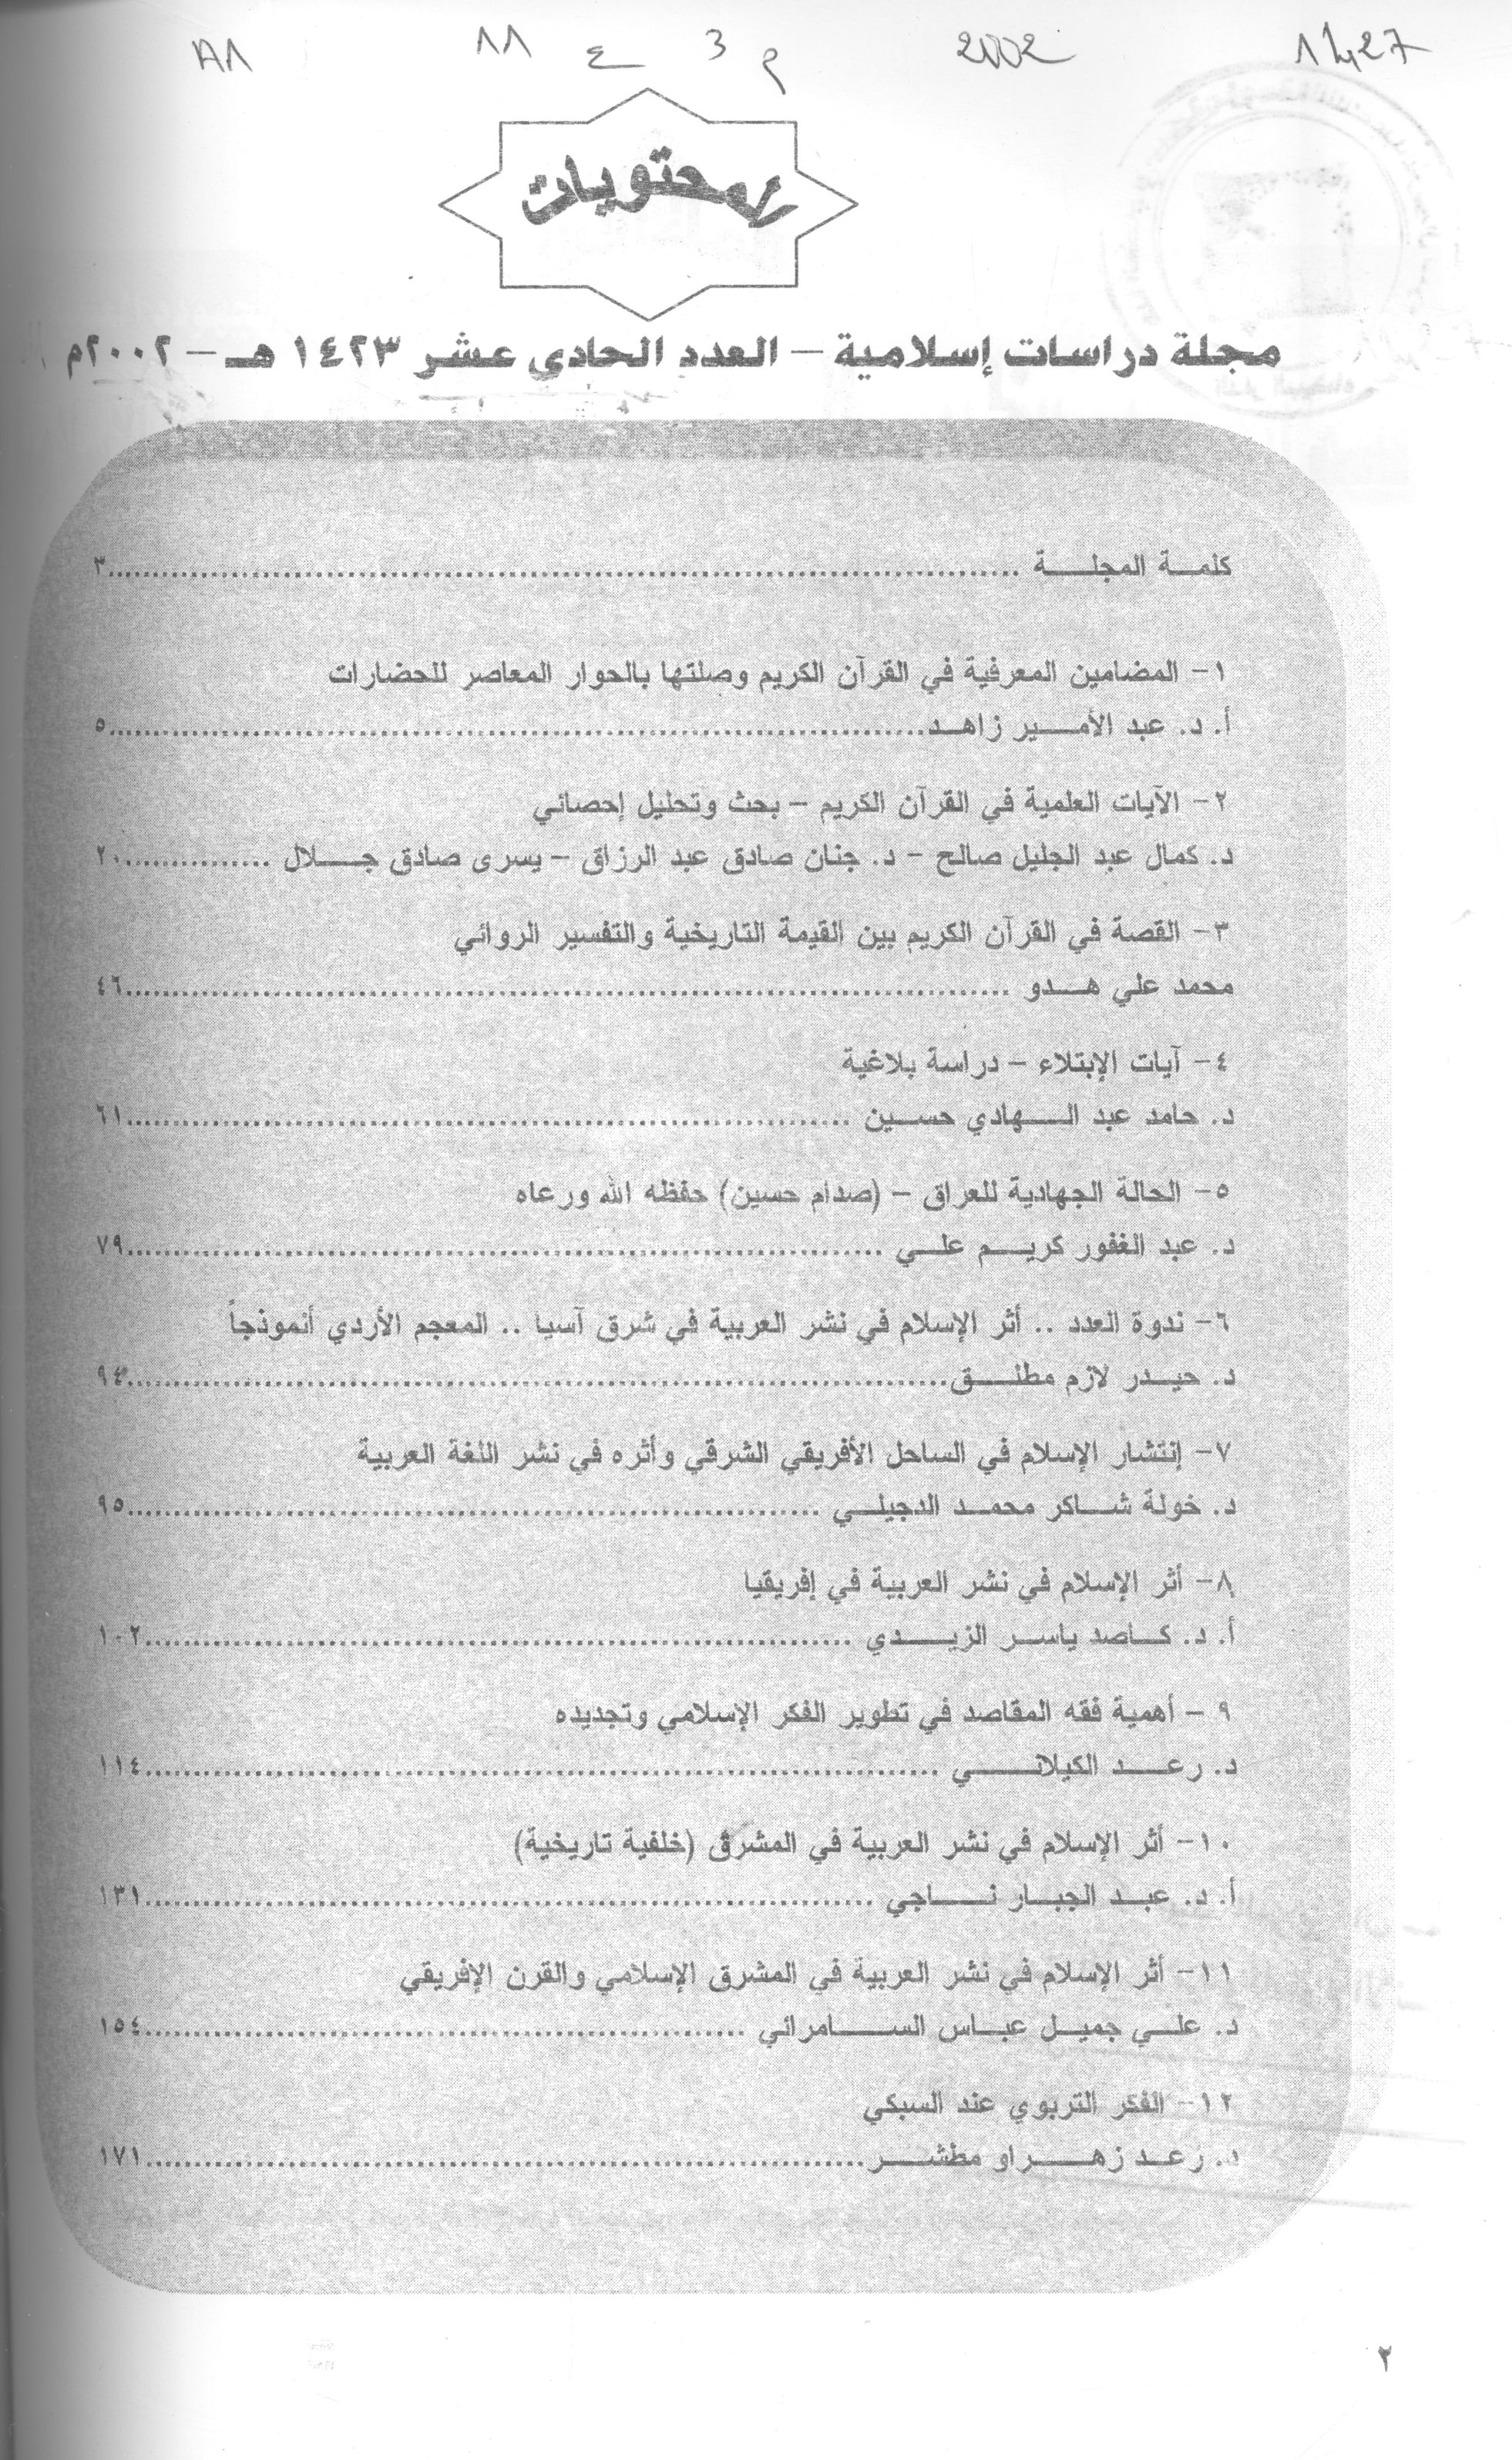 1427 2002 م 3 ع 11
المحتويات
مجلة دراسات إسلامية – العدد الحادي عشر ١٤٢٣ هـ – ٢٠٠٢م
كلمة المجلة ............٣
١- المضامين المعرفية في القرآن الكريم وصلتها بالحوار المعاصر للحضارات
أ. د. عبد الأمير زاهد............٥
٢- الآيات العلمية في القرآن الكريم – بحث وتحليل إحصائي
د. كمال عبد الجليل صالح – د. جنان صادق عبد الرزاق – يسرى صادق جلال ............٢٠
٣- القصة في القرآن الكريم بين القيمة التاريخية والتفسير الروائي
محمد علي هدو ............٤٦
٤- آيات الإبتلاء – دراسة بلاغية
د. حامد عبد الهادي حسين ............٦١
٥- الحالة الجهادية للعراق – (صدام حسين) حفظه الله ورعاه
د. عبد الغفور كريم علي ............٧٩
٦- ندوة العدد .. أثر الإسلام في نشر العربية في شرق آسيا .. المعجم الأردي أنموذجاً
د. حيدر لازم مطلق............٩٤
٧- إنتشار الإسلام في الساحل الأفريقي الشرقي وأثره في نشر اللغة العربية
د. خولة شاكر محمد الدجيلي ............٩٥
٨- أثر الإسلام في نشر العربية في إفريقيا
أ. د. كاصد ياسر الزيدي ............١٠٢
٩ – أهمية فقه المقاصد في تطوير الفكر الإسلامي وتجديده
د. رعد الكيلاني ............١١٤
١٠- أثر الإسلام في نشر العربية في المشرق (خلفية تاريخية)
أ. د. عبد الجبار ناجي ............١٣١
١١- أثر الإسلام في نشر العربية في المشرق الإسلامي والقرن الإفريقي
د. علي جميل عباس السامرائي ............١٥٤
١٢- الفكر التربوي عند السبكي
د. رعد زهراو مطشر............١٧١
٢